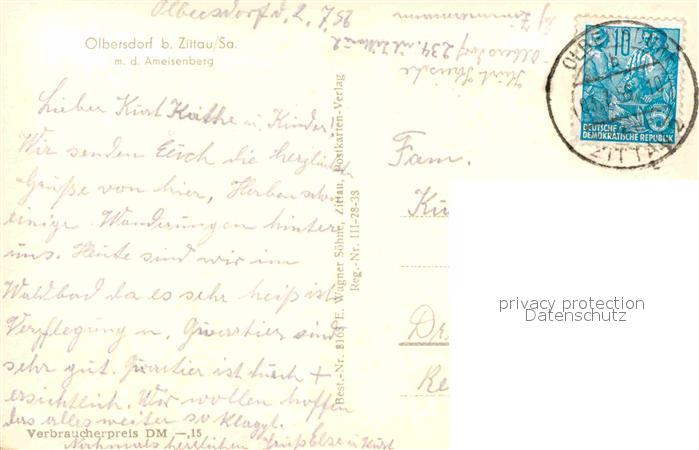 Olbersdorf d. 2. 7. 52
Olbersdorf b. Zittau/Sa.
m. d. Ameisenberg
Lieber Kurt Käthe u. Kinder!
Wir senden Euch die herzlichsten
Grüße von hier, Haben schon
einige Wanderungen hinter
uns. Heute sind wir im
Waldbad da es sehr heiß ist.
Verpflegung u. Quartier sind
sehr gut. Quartier ist durch +
ersichtlich. Wir wollen hoffen
das alles weiter so klappt.
Nochmals herzlichen Gruß Else u. Kurt
Verbraucherpreis DM —,15
Best.-Nr. 8163 E. Wagner Söhne, Zittau, Postkarten-Verlag
Reg.-Nr. III-28-38
Kurt
Olbersdorf 234
b/ Zimmermann
10
DEUTSCHE
DEMOKRATISCHE REPUBLIK
ZITTAU 2
Fam.
Ku
Dr
privacy protection
Datenschutz